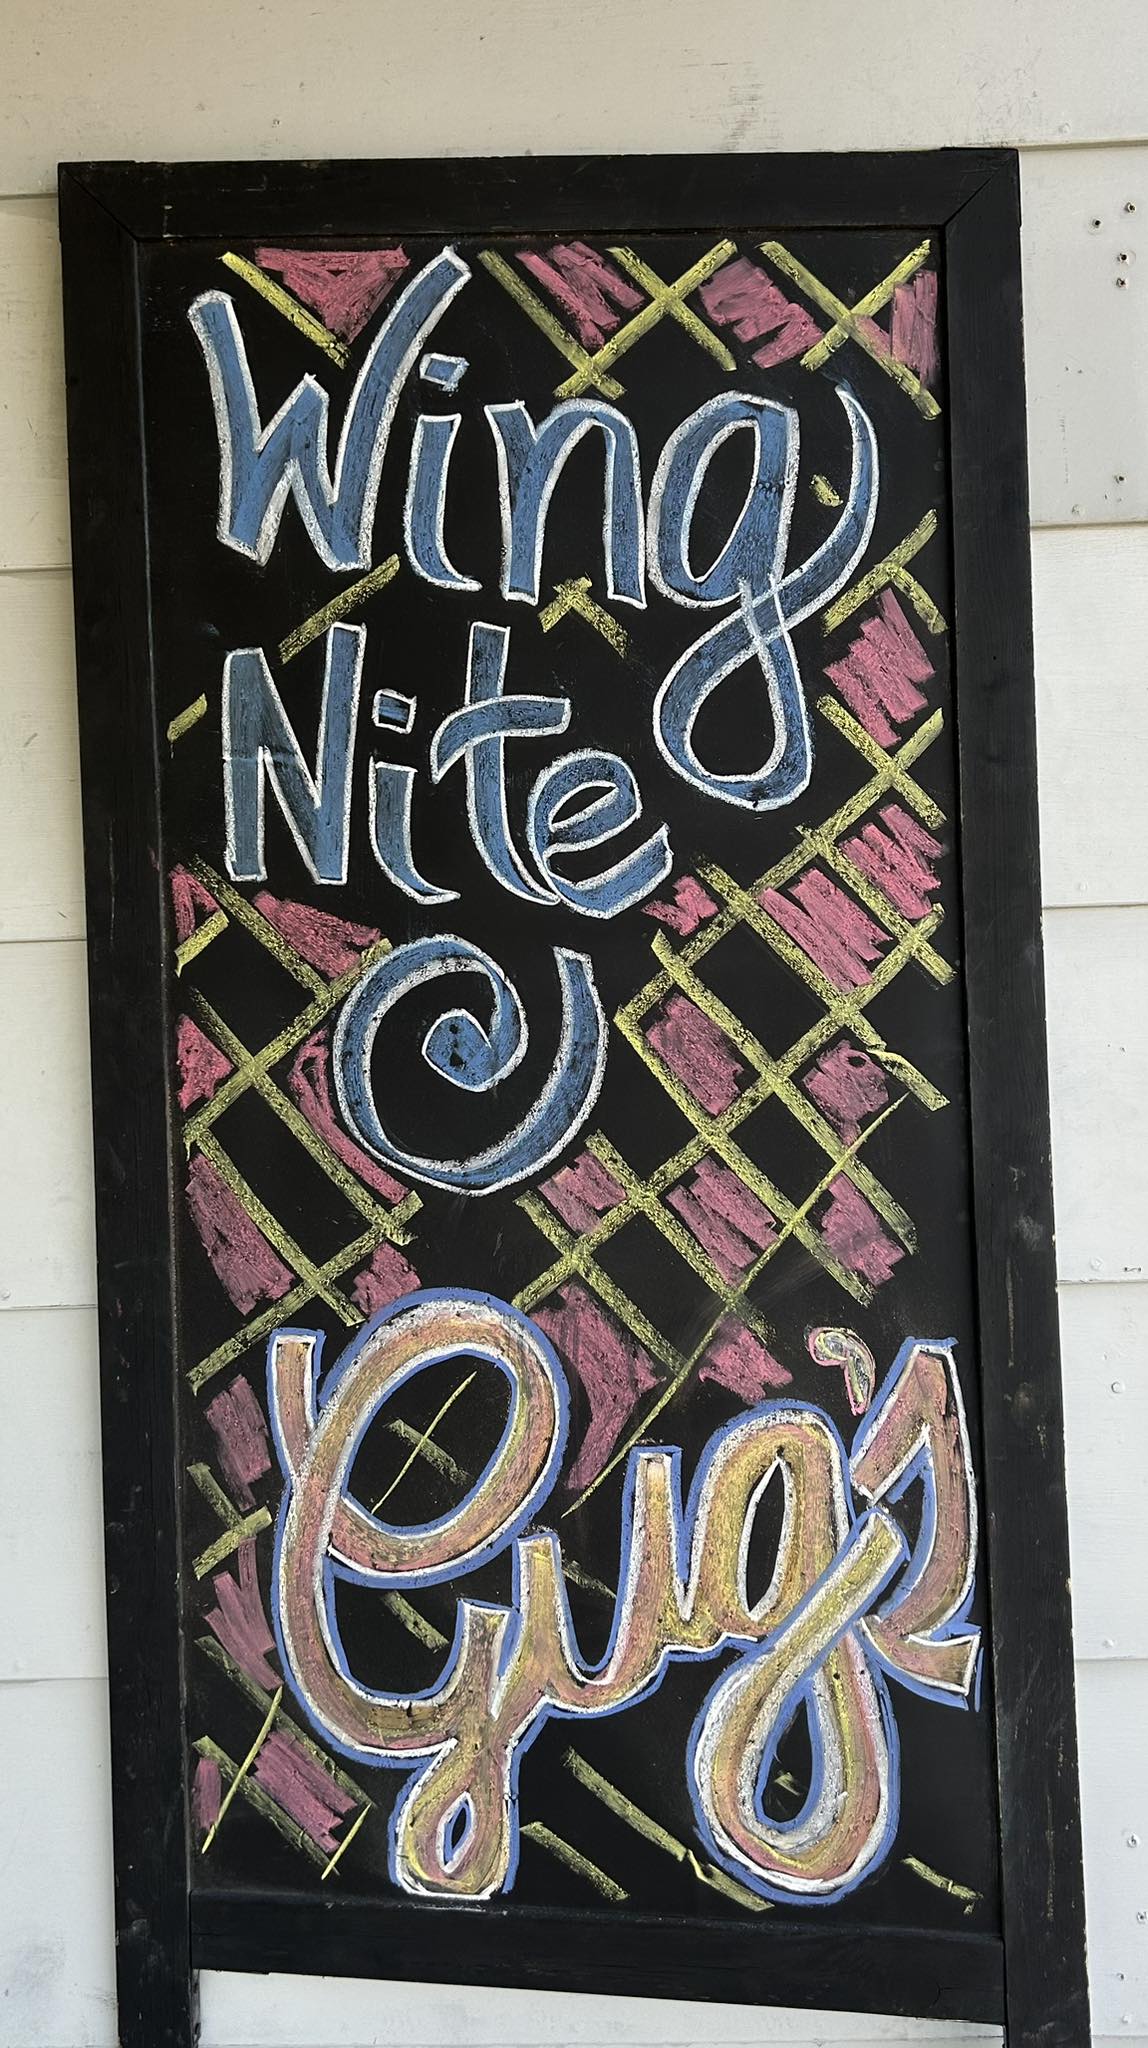 Wing
Nite
@
Gug's